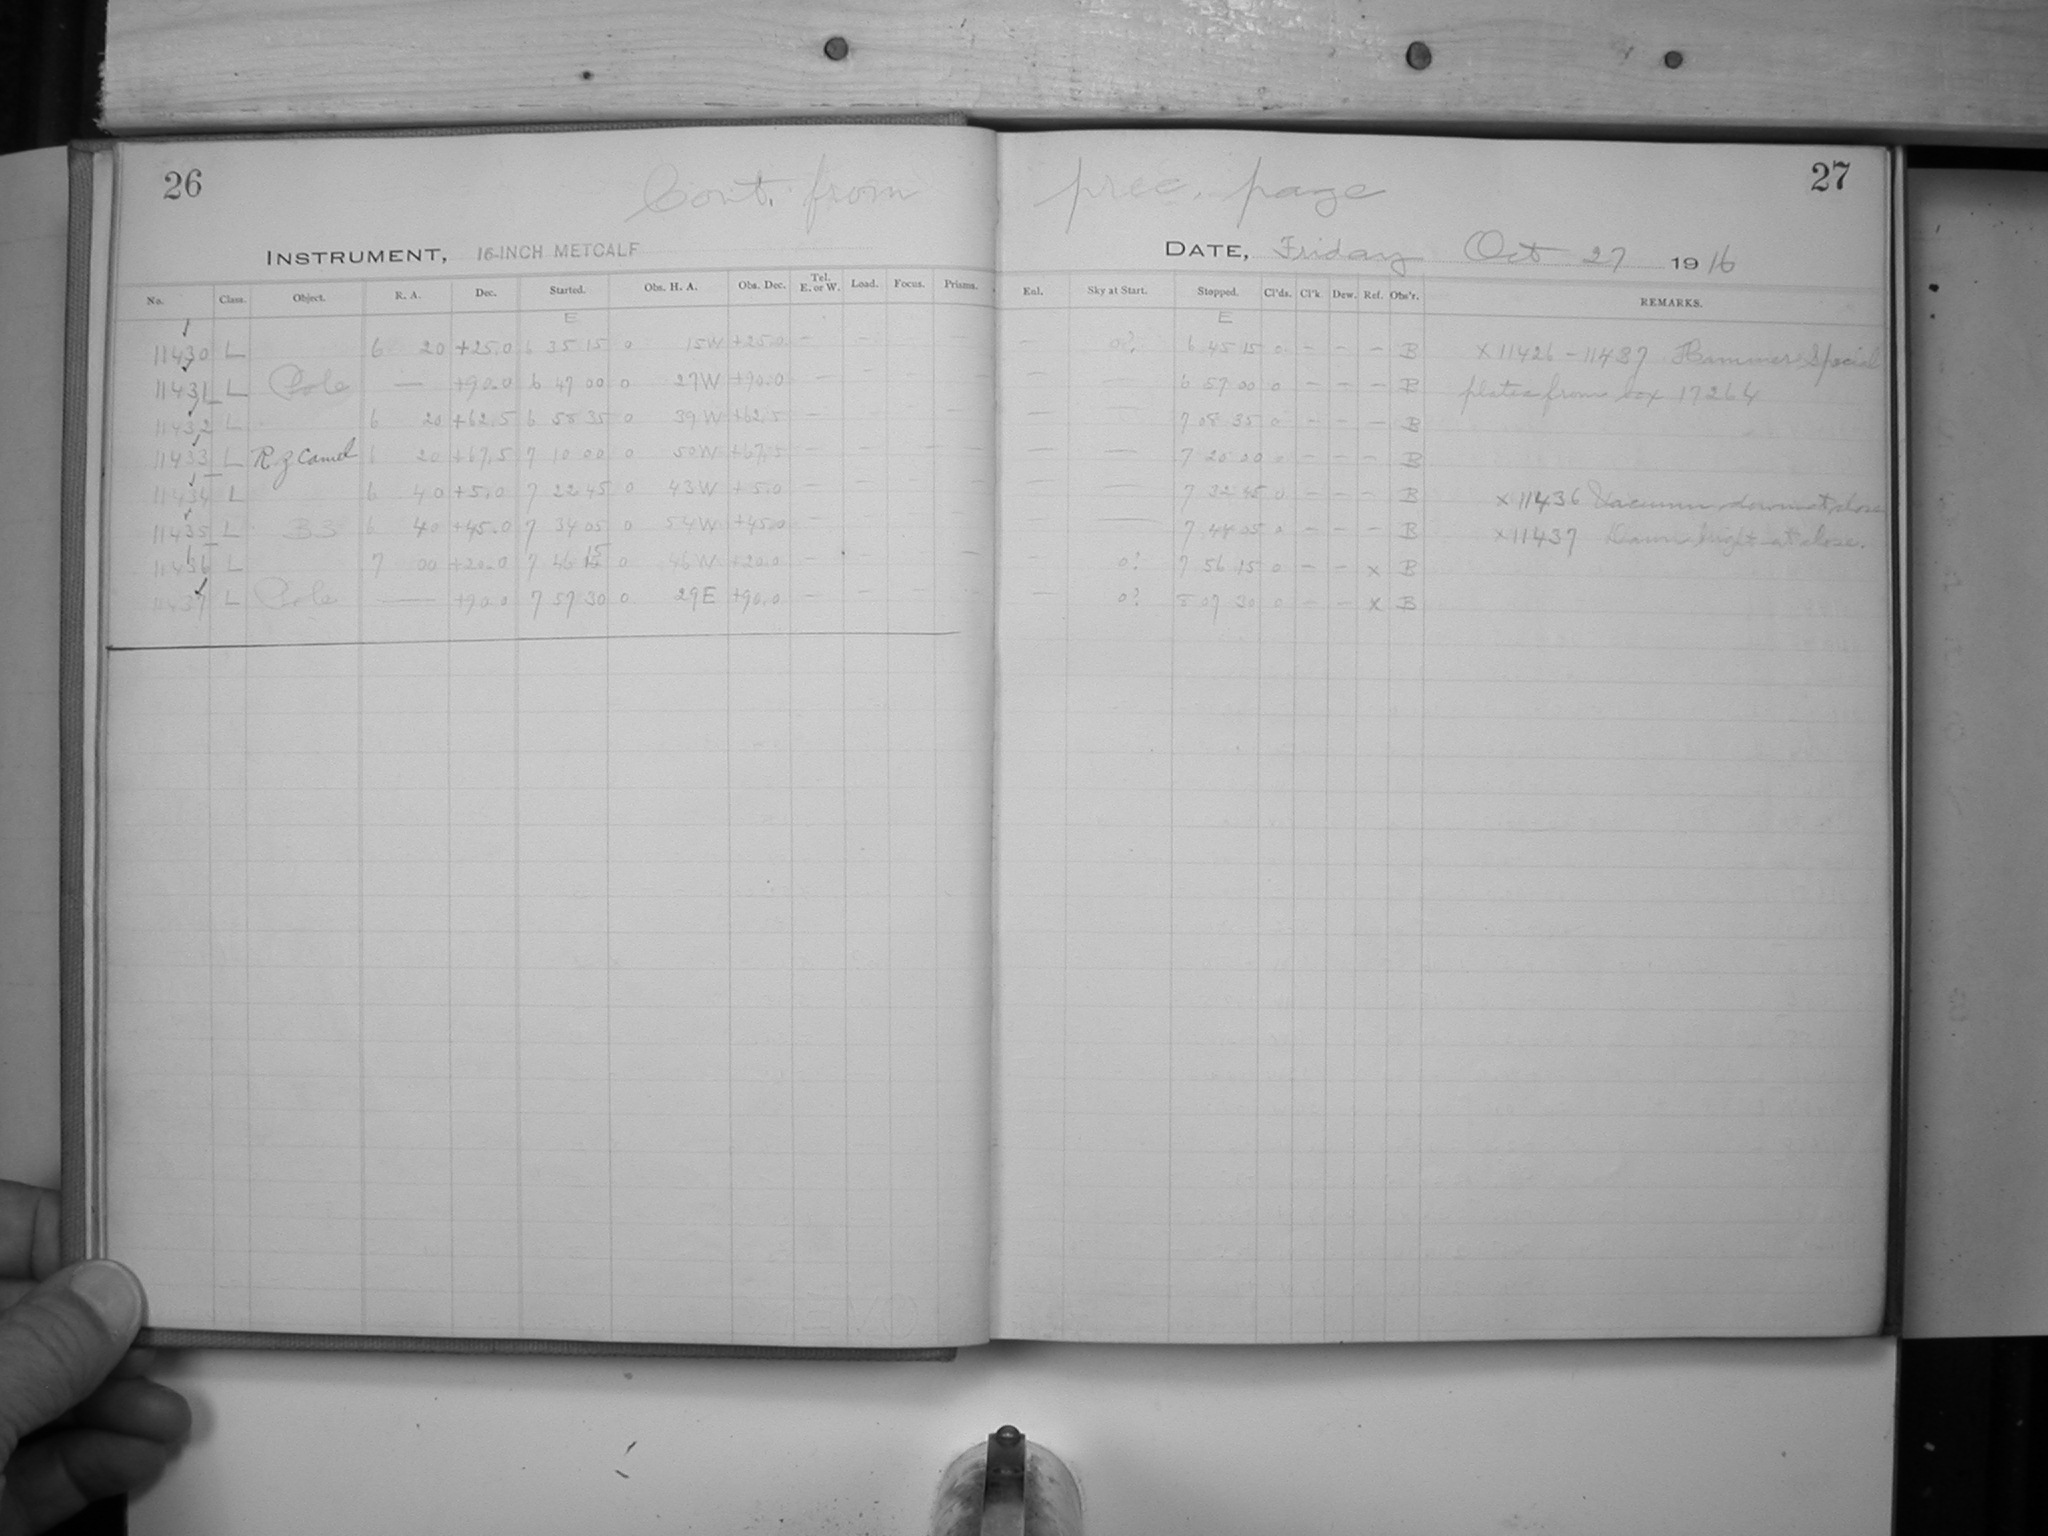 26
27
Cont. from prec. page
INSTRUMENT, 16-INCH METCALF
DATE, Friday Oct 27 1916
No. Class. Object. R. A. Dec. Started. Obs. H. A. Obs. Dec. Tel. E. or W. Load. Focus. Prisms. Enl. Sky at Start. Stopped. Cl'ds. Cl'k Dew. Ref. Obs'r. REMARKS.
E E
11430 L 6 20 +25.0 6 35 15 0 15W +25.0 - - - - 0? 6 45 15 0 - - - B x 11426 - 11437 Hammer Special
11431 L Pole — +90.0 6 47 00 0 27W +90.0 - - - - — 6 57 00 0 - - - B plates from box 17264
11432 L 6 20 +62.5 6 58 35 0 39W +62.5 - - - - — 7 08 35 0 - - - B
11433 L RZ Camel 6 20 +67.5 7 10 00 0 50W +67.5 - - - - - — 7 20 00 0 - - - B
11434 L 6 40 +5.0 7 22 45 0 43W +5.0 - - - - - — 7 32 45 0 - - - B x 11436 Vacuum down at close
11435 L B3 6 40 +45.0 7 34 05 0 54W +45.0 - - - - — 7 44 05 0 - - - B x 11437 Dawn bright at close.
11436 L 7 00 +20.0 7 46 15 0 46W +20.0 - - - 0? 7 56 15 0 - - x B
11437 L Pole — +90.0 7 57 30 0 29E +90.0 - - - - - 0? 8 07 30 0 - - x B